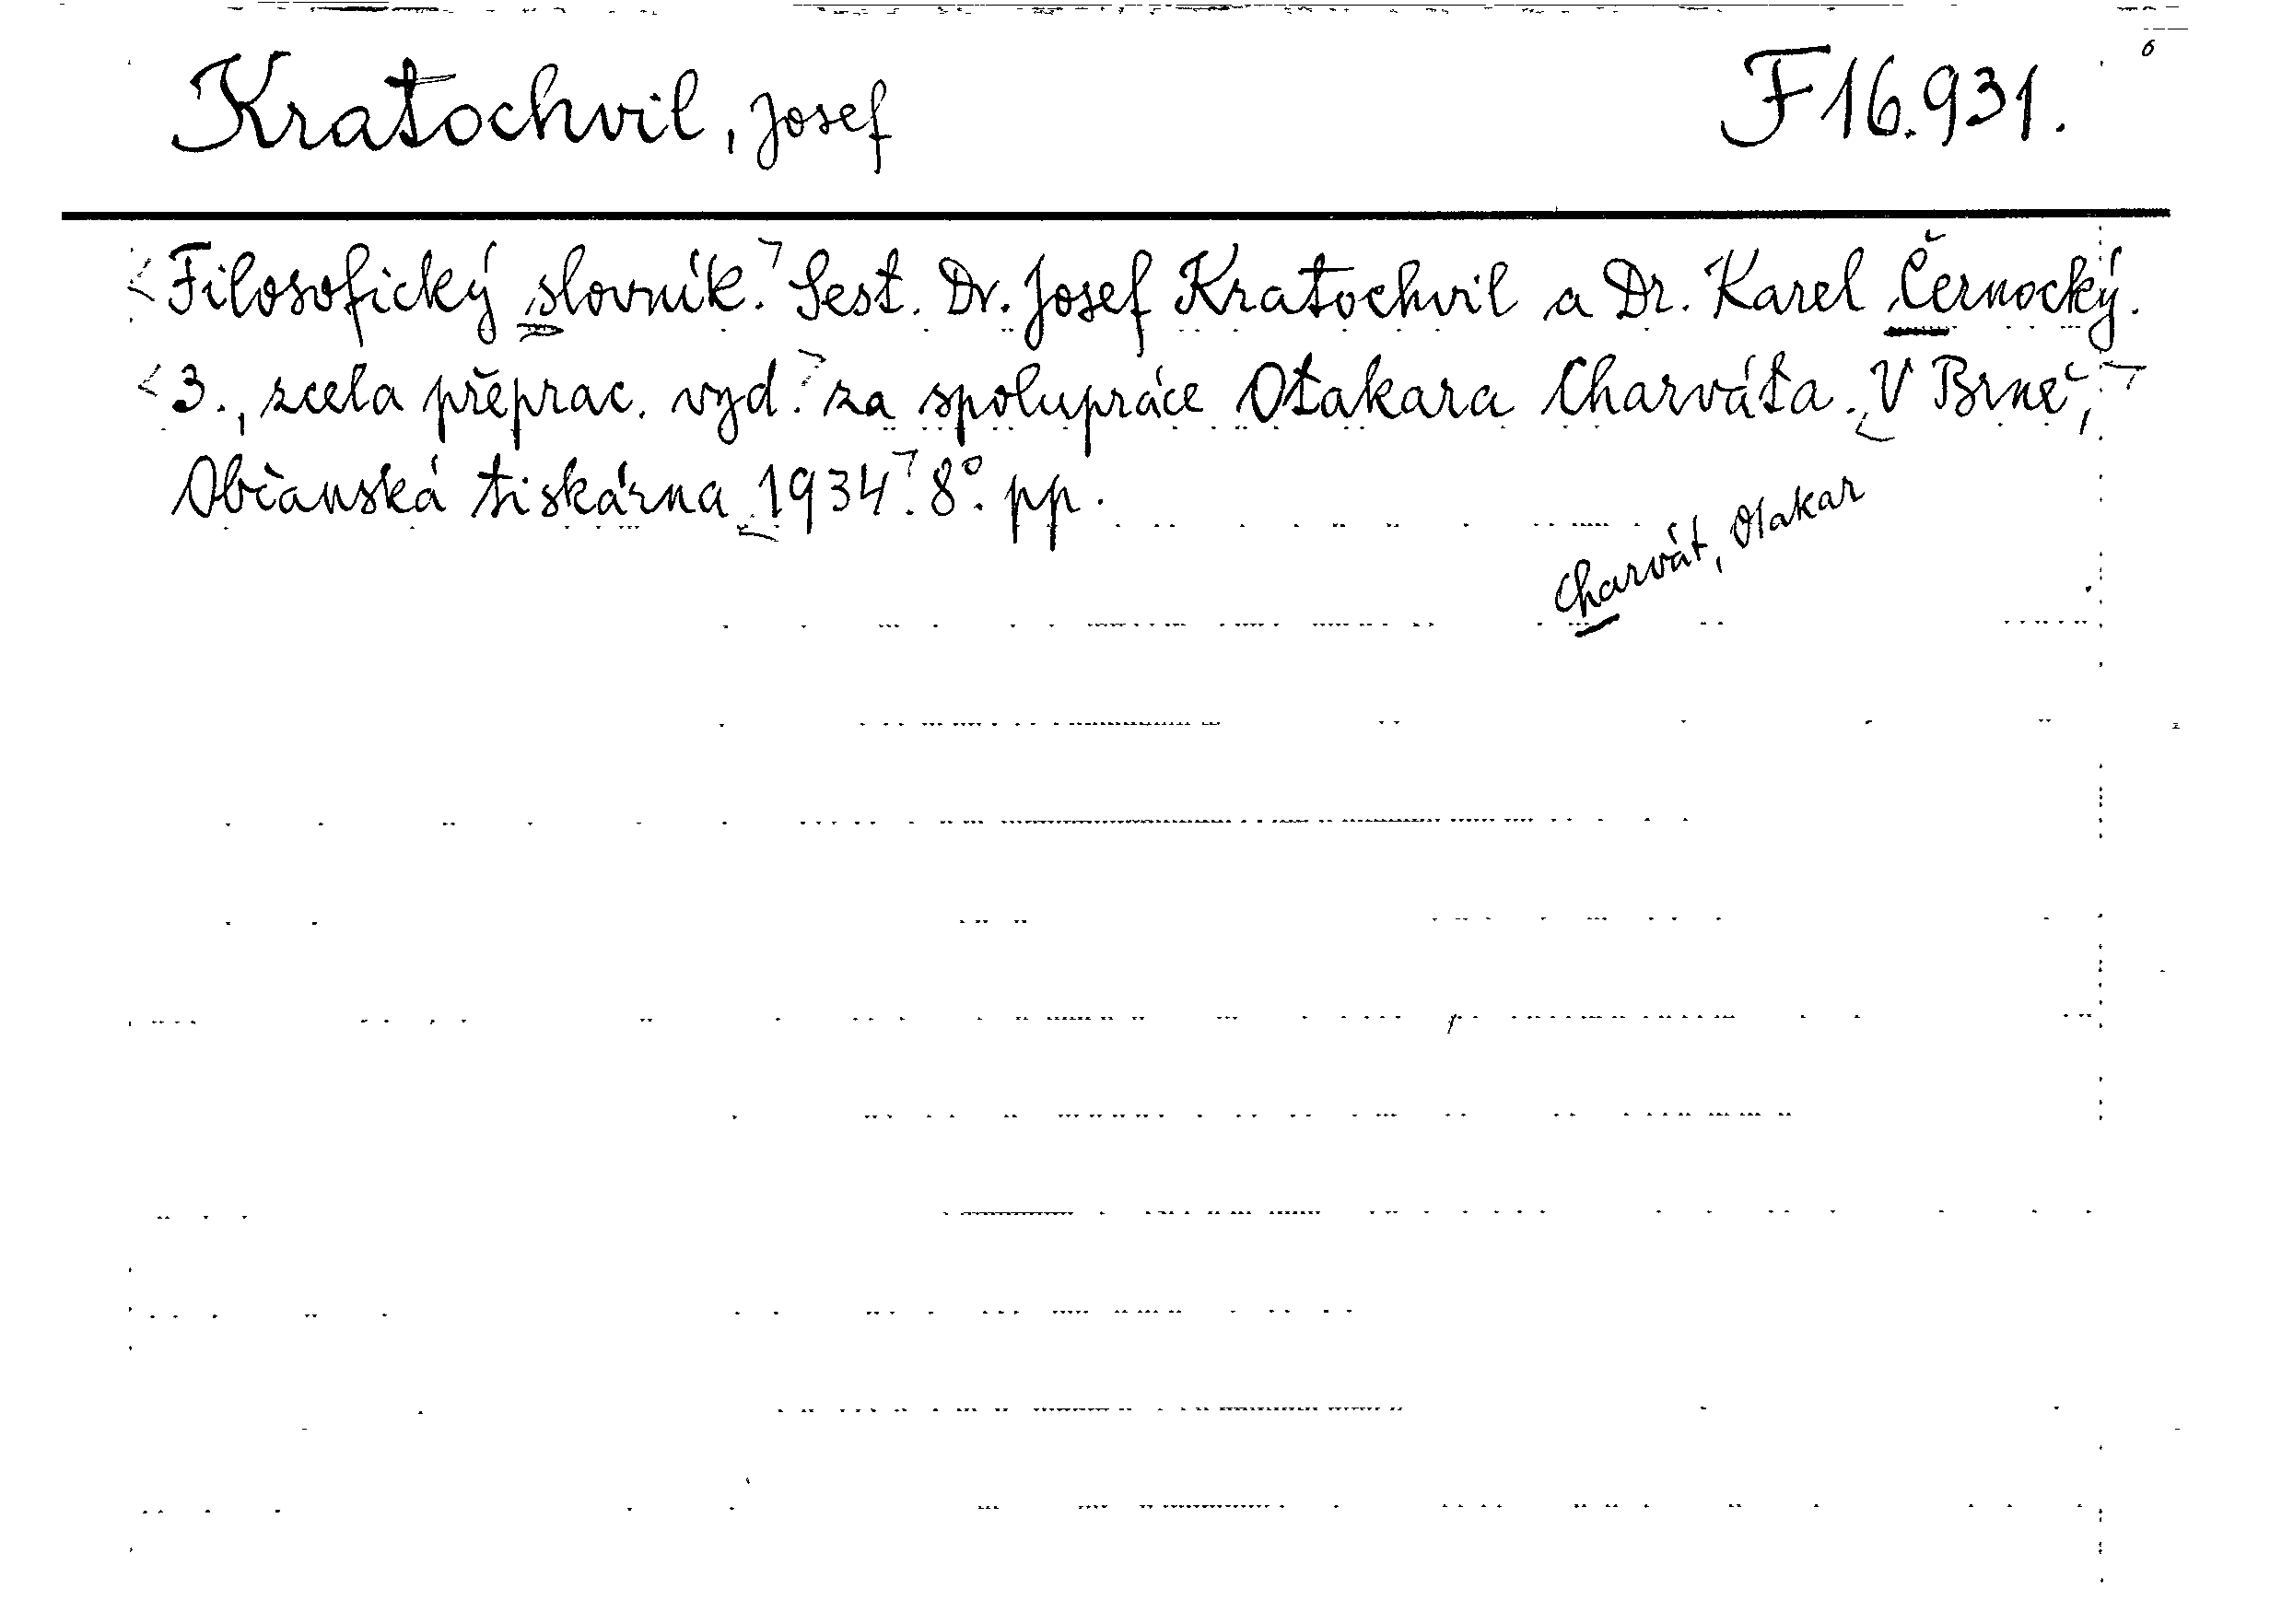 6
Kratochvil, Josef F 16.931.
Filosofický slovník. Sest. Dr. Josef Kratochvil a Dr. Karel Černocký.
3., zcela přeprac. vyd. za spolupráce Otakara Charváta. V Brně,
Občanská tiskárna 1934. 8°. pp.
Charvát, Otakar